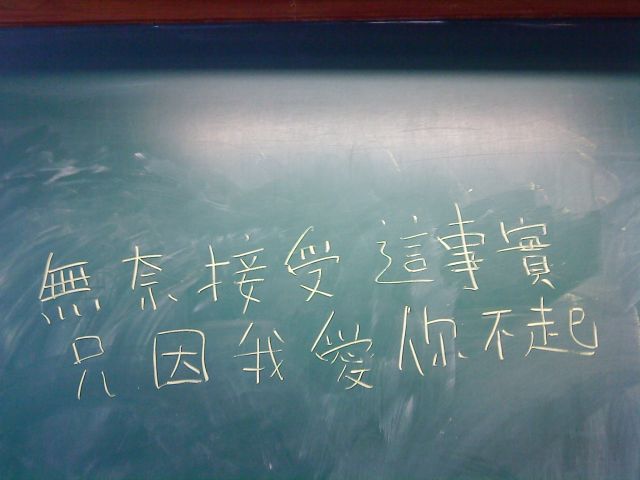 無奈接受這事實
只因我愛你不起